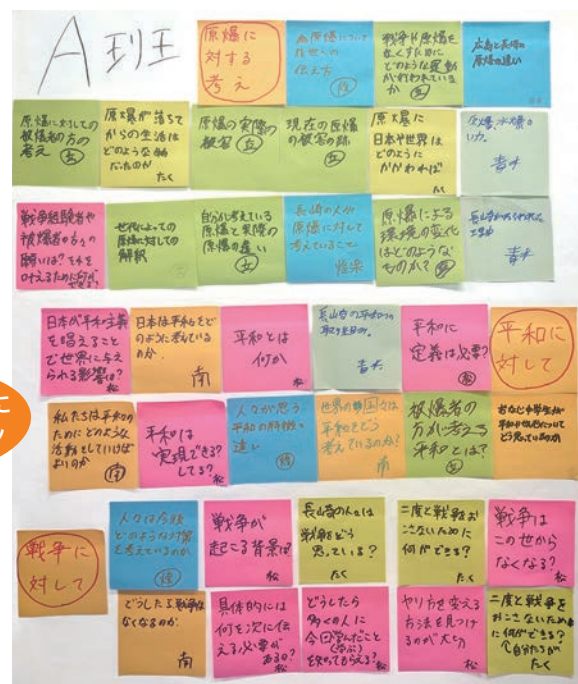 A班
原爆に
対する
考え
原爆について
後世への
伝え方
戦争や原爆を
なくすために
どのような運動
が行われているか
広島と長崎の
原爆の違い
原爆に対しての
被爆者の方の
考え
原爆が落ちて
からの生活は
どのような物
だったのか
たく
原爆の実際の
被害
現在の原爆
の被害の跡
原爆に
日本や世界は
どのように
かかわれば
たく
青木
戦争経験者や
被爆者の方々の
願いは?それを
叶えるために何ができる?
世代によっての
原爆に対しての
解釈
自分が考えている
原爆と実際の
原爆の違い
長崎の人が
原爆に対して
考えていること
原爆による
環境の変化
はどのような
ものか?
理由
青木
日本が平和主義
を唱えること
で世界に与え
られる影響は?
松
日本は平和をど
のように考えている
のか
南
平和とは
何か
松
長崎の平和への
取り組み。
青木
平和に
定義は必要?
松
平和に
対して
私たちは平和の
ためにどのような
活動をしていけば
よいのか
南
平和は
実現できる?
してる?
松
人々が思う
平和の解釈の
違い
世界の国々は
平和をどう
考えているのか?
南
被爆者の
方が考える
平和とは?
おなじ中学生が
どう思っているのか
戦争に
対して
人々は今後
どのような対策
を考えているのか
戦争が
起こる背景は?
松
長崎の人々は
戦争をどう
思っている?
たく
二度と戦争をお
こさないために
何ができる?
たく
戦争は
この世から
なくなる?
松
どうしたら戦争は
なくなるのか
南
具体的には
何を次に伝
える必要が
あるの?
松
どうしたら
多くの人に
今日学んだこと
(学ぶ)
を知ってもらえる?
松
やり方を変える
方法を見つけ
るのが大切
松
二度と戦争を
おこさないため
に何ができる?
自分たちが
たく